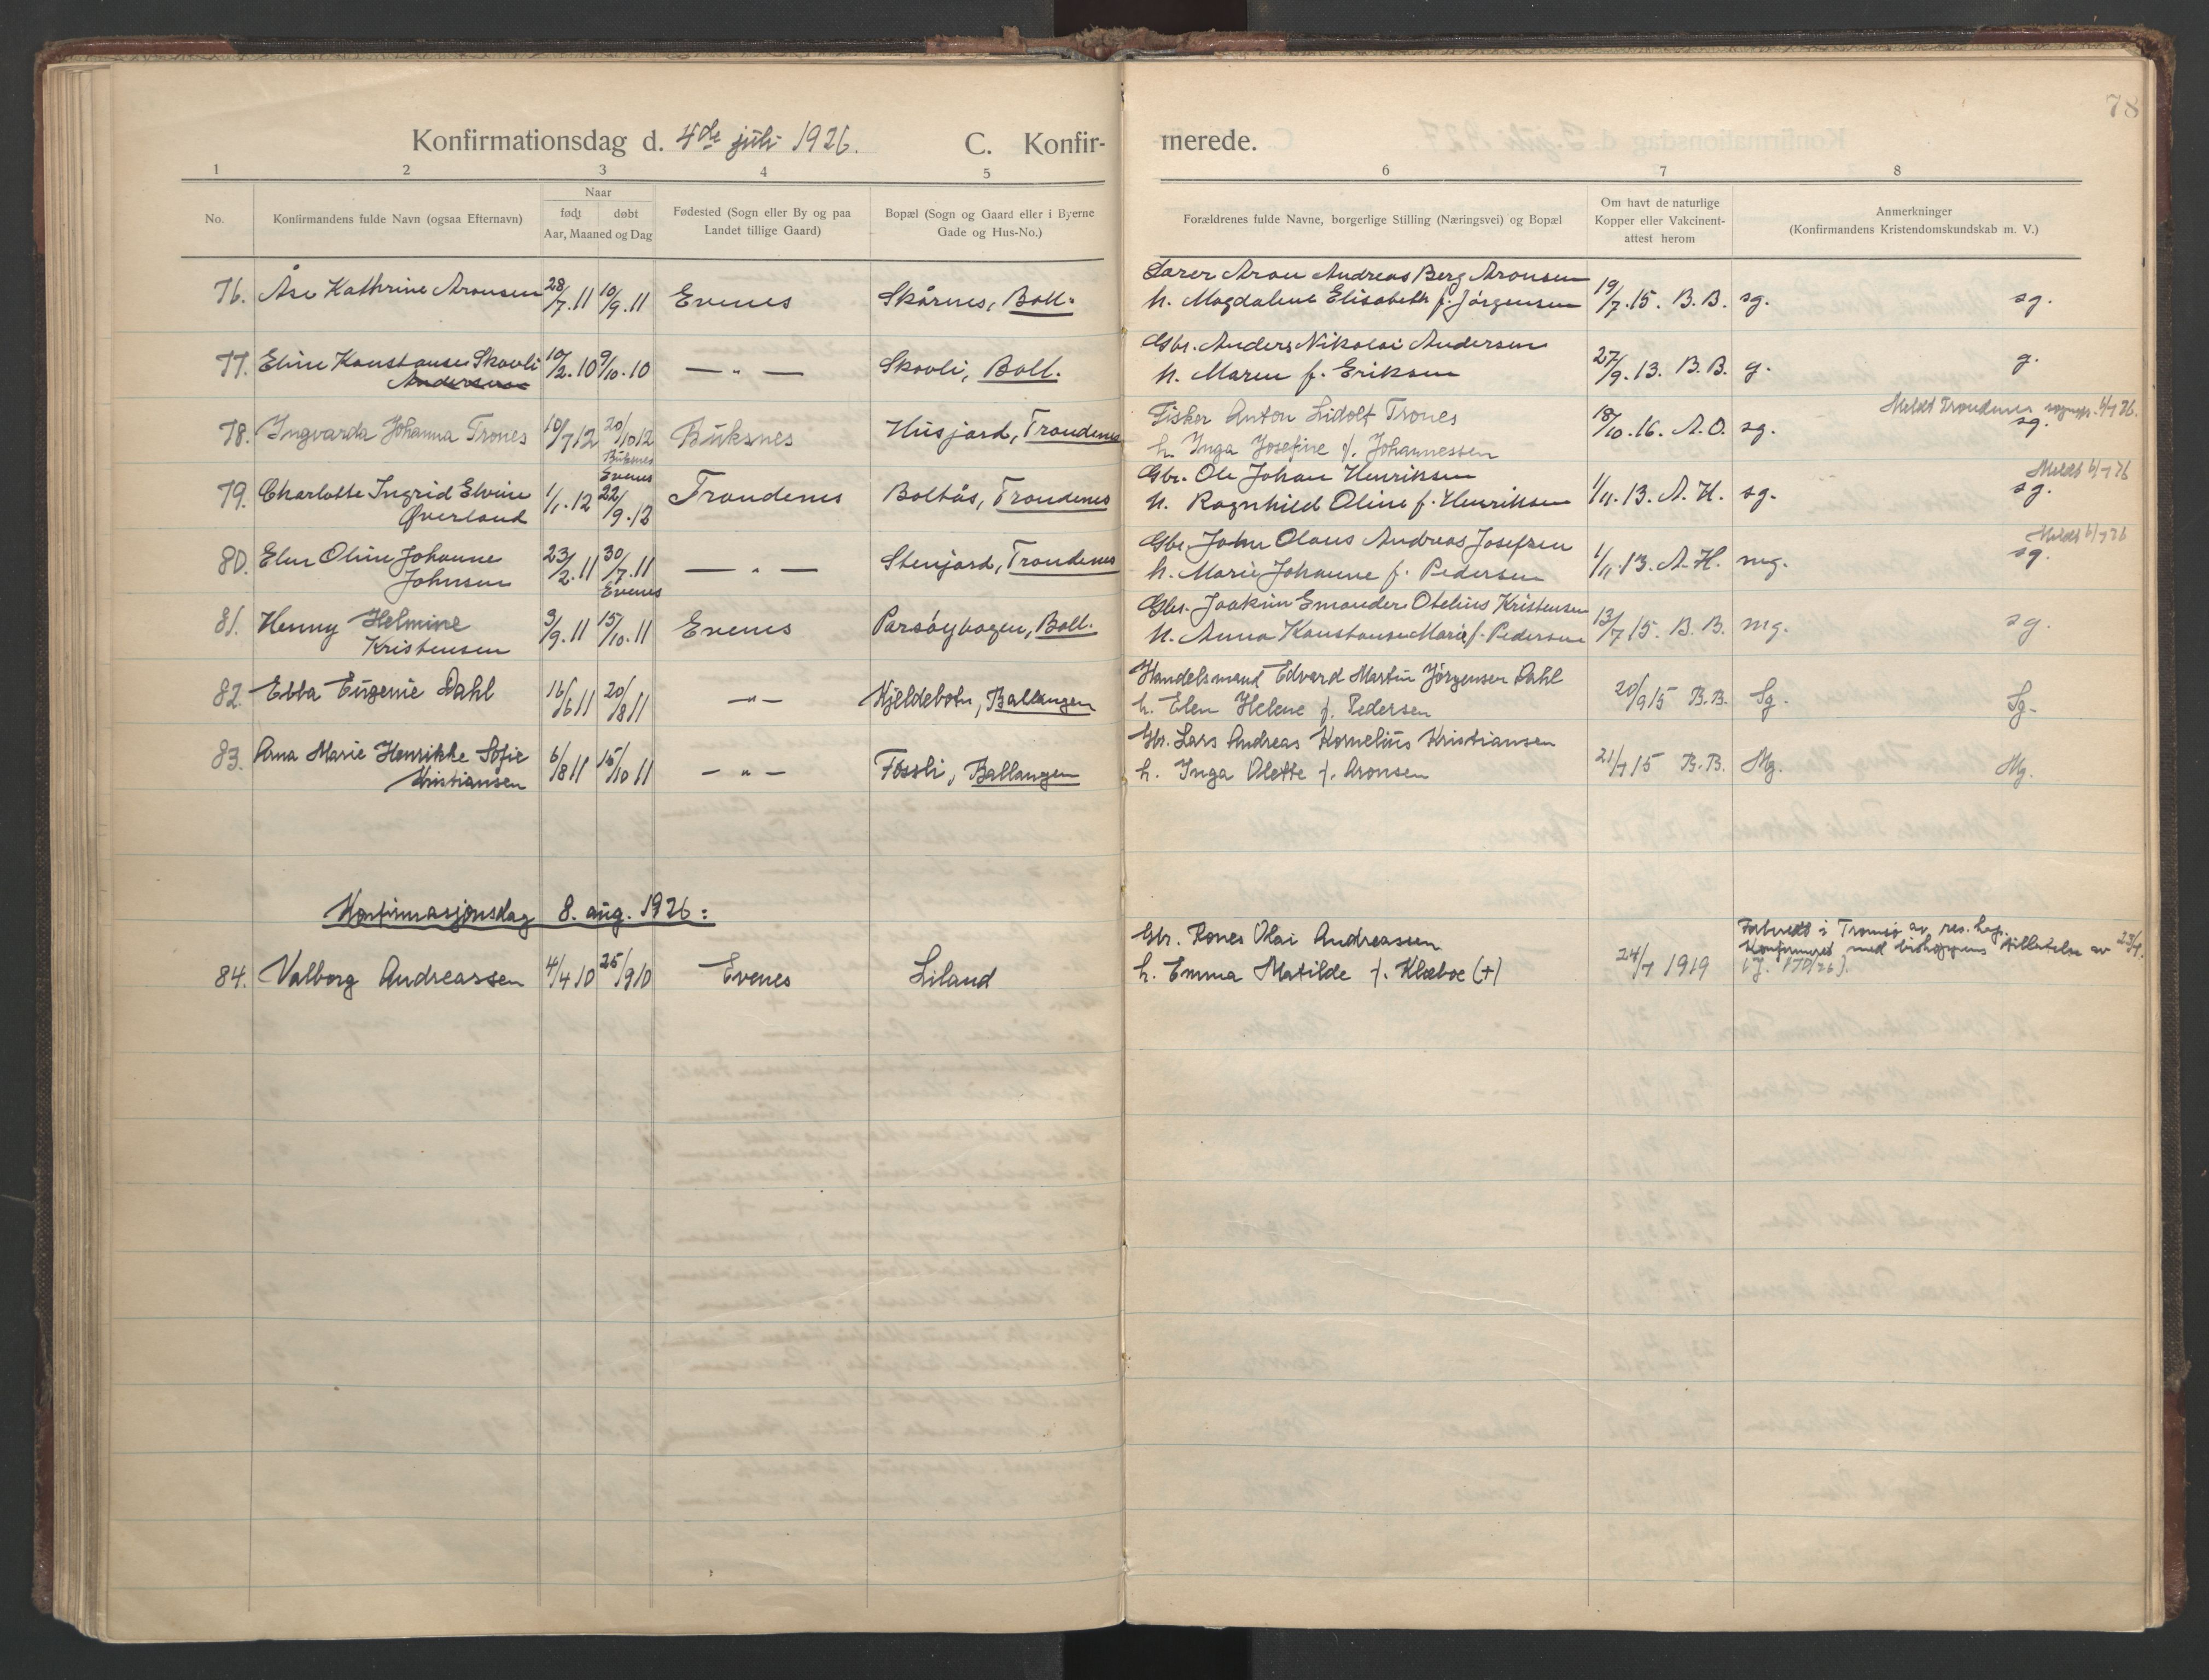 78
Konfirmationsdag d. 4de juli 1926. C. Konfirmerede.
1 2 3 4 5 6 7 8
No. Konfirmandens fulde Navn (ogsaa Efternavn) Naar født døbt Aar, Maaned og Dag Fødested (Sogn eller By og paa Landet tillige Gaard) Bopæl (Sogn og Gaard eller i Byerne Gade og Hus-No.) Forældrenes fulde Navne, borgerlige Stilling (Næringsvei) og Bopæl Om havt de naturlige Kopper eller Vakcinentattest herom Anmerkninger (Konfirmandens Kristendomskundskab m. V.)
76. Åse Kathrine Aronsen 28/7.11 10/9.11 Evenes Skårnes, Ball. Lærer Aron Andreas Berg Aronsen
h. Magdalene Elisabeth f. Jørgensen 19/7.15. B.B. sg. sg.
77. Eline Konstanse Skovli 10/2.10 9/10.10 — " — Skovli, Ball. Gbr. Anders Nikolai Andersen
Andersen h. Maren f. Eriksen 27/9.13. B.B. g. g.
78. Ingvarda Johanna Trones 10/7 12 20/10 12 Buksnes Husjord, Trondenes Fisker Anton Lidolt Trones Meldt Trondenes sognepr. 6/7 26.
Buksnes h. Inga Josefine f. Johannessen 18/10.16. A.O. sg. sg.
79. Charlotte Ingrid Elvine 1/1.12 Evenes 22/9.12 Trondenes Boltås, Trondenes Gbr. Ole Johan Henriksen Meldt 6/7 26
Øverland h. Ragnhild Oline f. Henriksen 1/11.13. A.H. sg. sg.
80. Elen Oline Johanne 23/2.11 30/7.11 — " — Stenjord, Trondenes Gbr. John Olaus Andreas Josefsen Meldt 6/7 26
Johnsen Evenes h. Marie Johanne f. Pedersen 1/11.13. A.H. mg. sg.
81. Henny Helmine 3/9.11 15/10.11 Evenes Parsøybogen, Ball. Gbr. Joakim Emander Otelius Kristensen
Kristensen h. Anna Konstanse Marie f. Pedersen 13/7 15. B.B. mg. sg.
82. Ebba Eugenie Dahl 16/6 11 20/8 11 — " — Kjeldebotn, Ballangen Handelsmand Edvard Martin Jørgensen Dahl
h. Elen Helene f. Pedersen 20/9 15 B.B. Sg. Sg.
83. Arna Marie Henrikke Sofie 6/8 11 15/10 11 — " — Fossli, Ballangen Gbr. Lars Andreas Kornelius Kristiansen
Kristiansen h. Inga Olette f. Aronsen 21/7 15 B.B. Mg. Mg.
Konfirmasjonsdag 8. aug. 1926:
84. Valborg Andreassen 4/4 10 25/9 10 Evenes Liland Gbr. Rones Olai Andreassen
h. Emma Matilde f. Klæboe (+) 24/7 1919 Forberedt i Tromsø av res. kap.
Konfirmeret med biskoppens tillatelse av 23/7.
(J. 870/26).